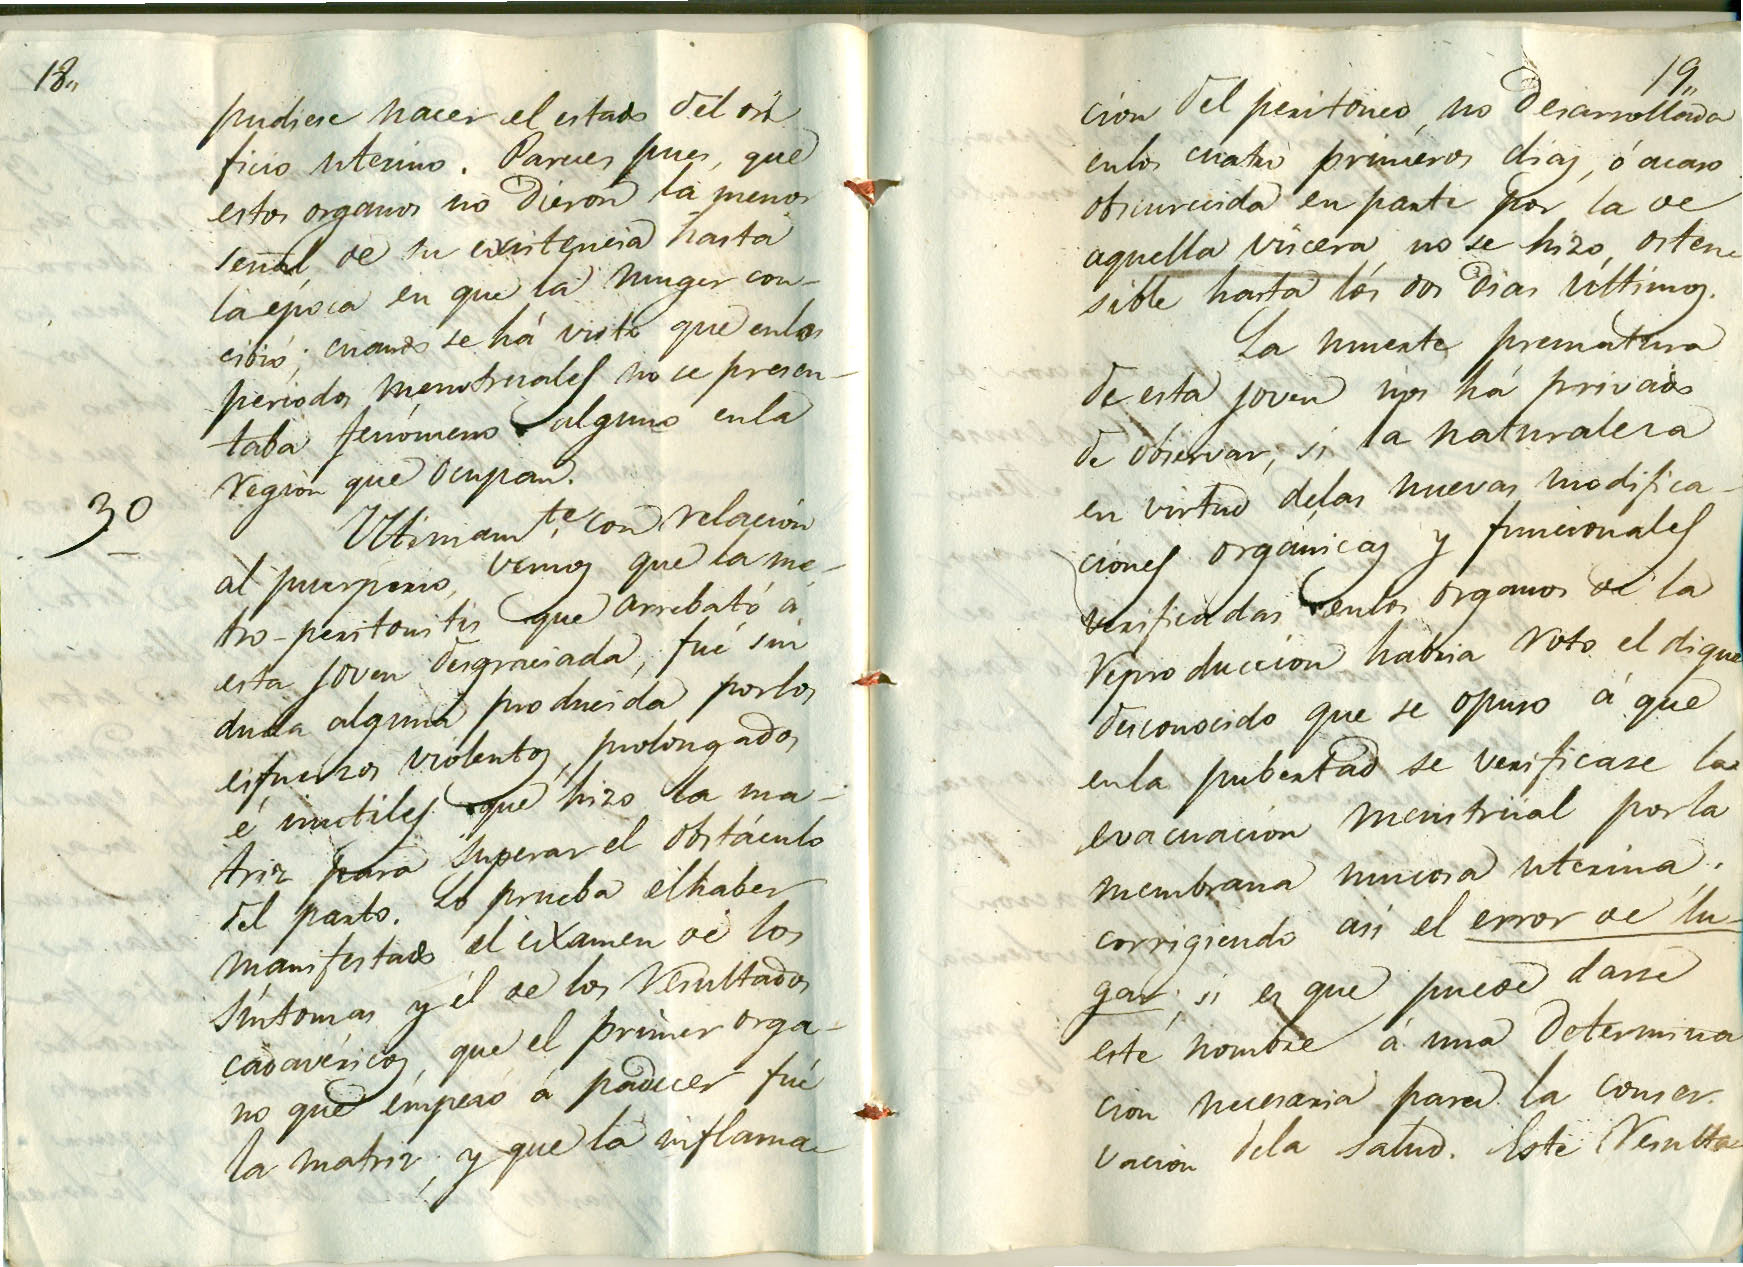 18,,
pudiese hacer el estado del ori
ficio uterino. Parece pues, que
estos organos no dieron la menor
señal de su existencia hasta
la época en que la muger con-
cibió; cuando se há visto que en los
periodos menstruales no se presen-
taba fenómeno alguno en la
region que ocupan.
3º
Ultimamte. con relacion
al puerperio, vemos que la me-
tro-peritonitis que arrebató á
esta joven desgraciada, fué sin
duda alguna producida por los
esfuerzos violentos, prolongados
é inutiles que hizo la ma-
triz para superar el obstáculo
del parto. Lo prueba el haber
manifestado el exámen de los
síntomas y él de los resultados
cadavéricos, que el primer orga-
no que empezó á padecer fué
la matriz, y que la inflama-
19,,
cion del peritoneo, no desarrollada
en los cuatro primeros dias, ó acaso
obscurecida en parte por la de
aquella víscera, no se hizo osten-
sible hasta los dos dias últimos.
La muerte prematura
de esta joven nos há privado
de observar, si la naturaleza
en virtud de las nuevas modifica-
ciones orgánicas y funcionales
verificadas en los organos de la
reproduccion habria roto el dique
desconocido que se opuso á que
en la pubertad se verificase la
evacuacion menstrual por la
membrana mucosa uterina,
corrigiendo asi el error de lu-
gar, si es que puede darse
este nombre á una determina
cion necesaria para la conser-
vacion de la salud. Este resulta-